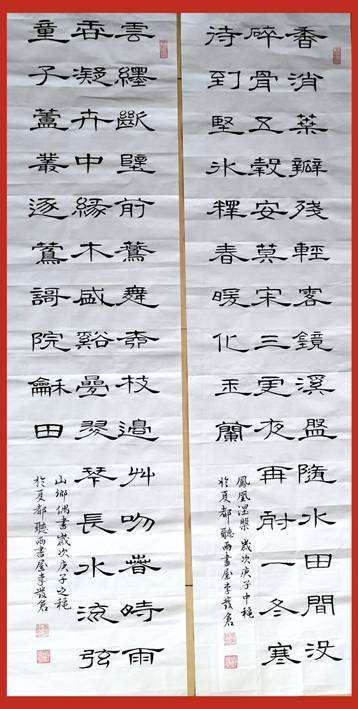 香消葉瓣殘輕客鏡溪盤隨水田間没
碎骨五穀安莫宋三更夜再耐一冬寒
待到堅冰釋春暖化玉蘭
鳳凰涅槃 歲次庚子中穐
於夏都聽雨書屋李發倉
雲纏斷壁前驚舞奇枝邉艸吻萅時雨
吞凝卉中緣木盛谿疊翠琴長水流弦
童子蘆叢逐鶯謌院龢田
山鄉偶書 歲次庚子之穐
於夏都聽雨書屋李發倉